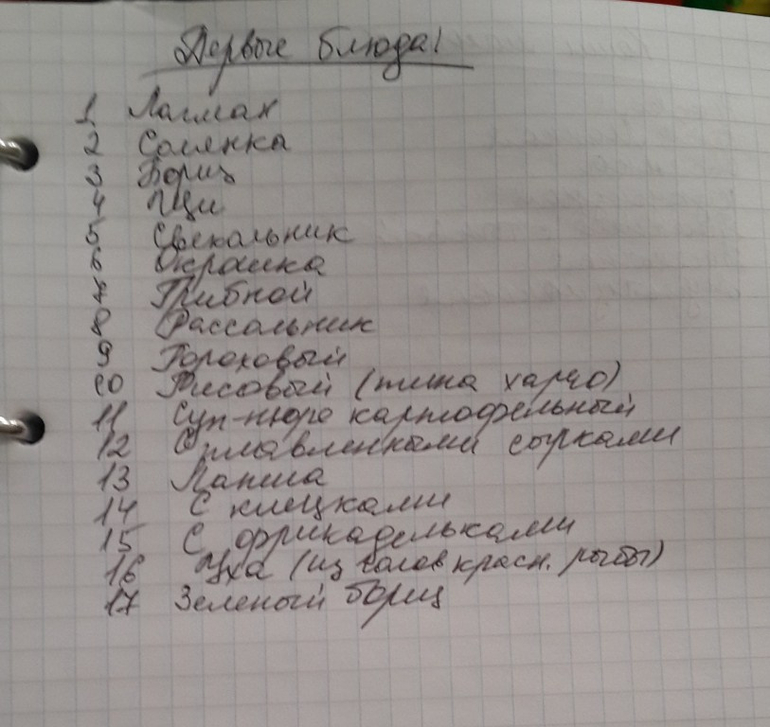 Первые блюда!
1 Лагман
2 Солянка
3 Борщ
4 Щи
5 Свекольник
6 Окрошка
7 Грибной
8 Рассольник
9 Гороховый
10 Рисовый (типа харчо)
11 Суп-пюре картофельный
12 С плавленными сырками
13 Лапша
14 С клецками
15 С фрикадельками
16 Уха (из голов красн. рыбы)
17 Зеленый борщ